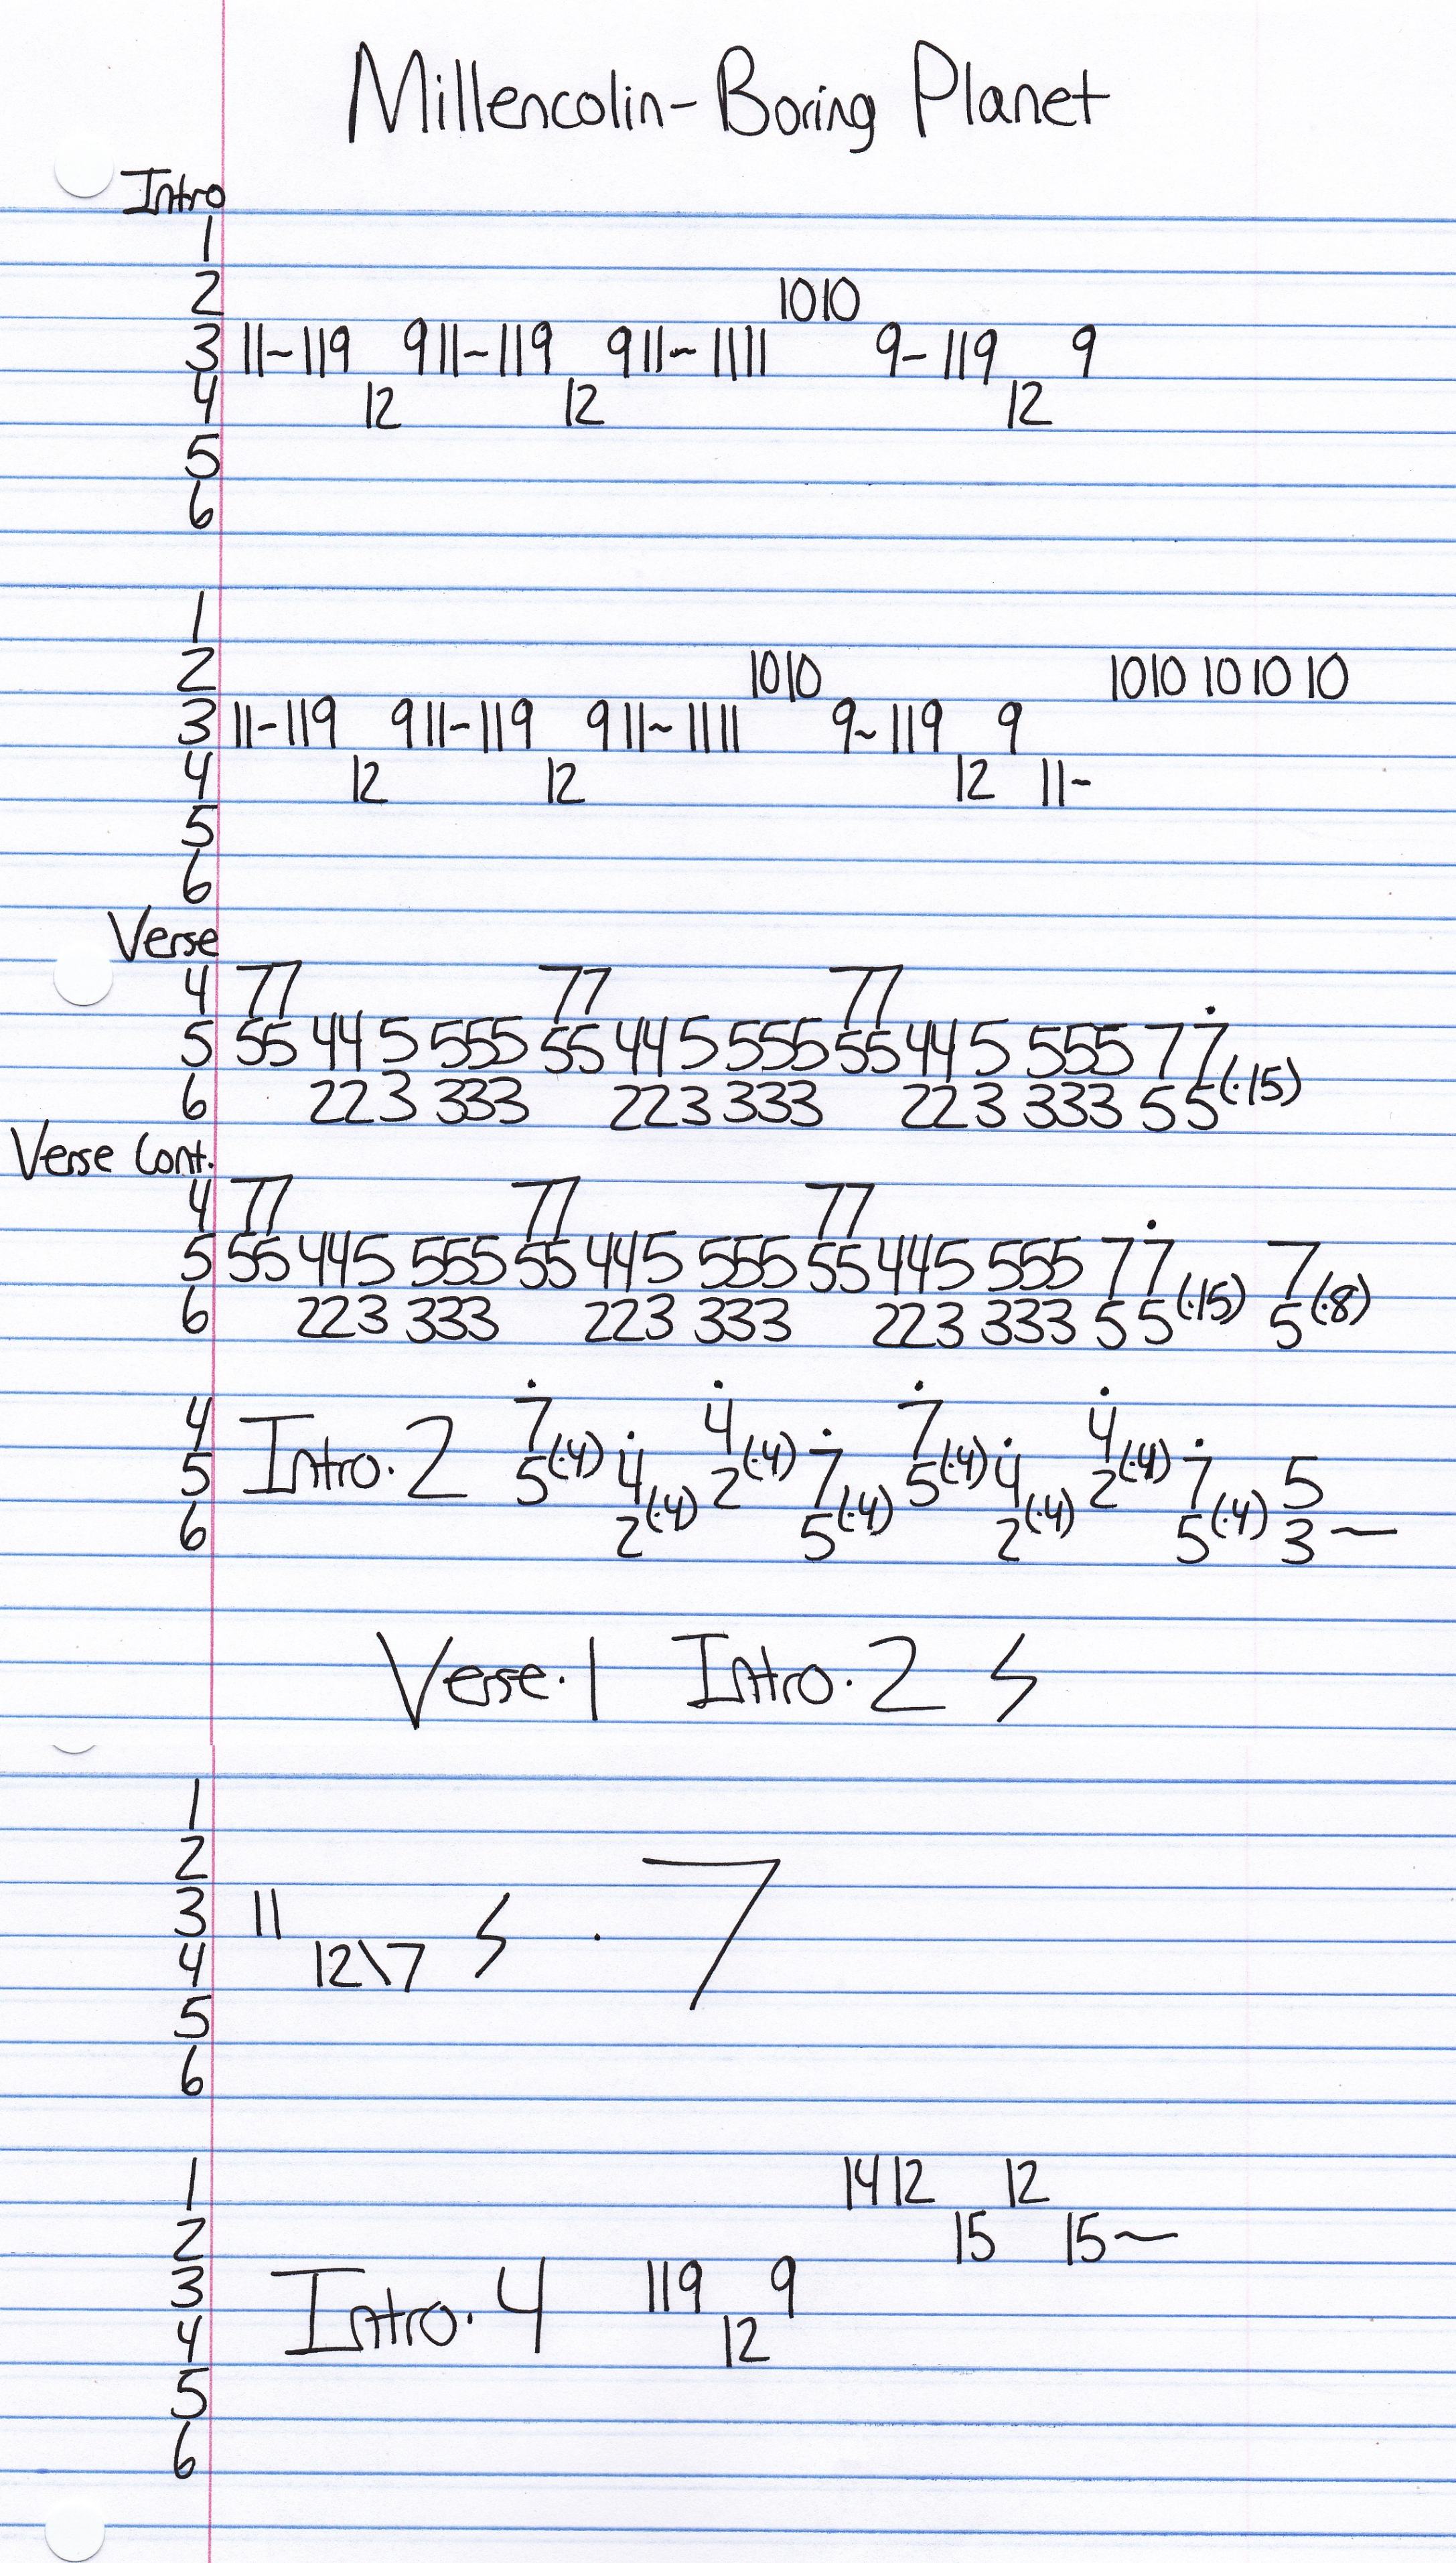 Millencolin-Boring Planet
Intro
1
2 1010
3 11~119 911~119 911~1111 9-119 9
4 12 12 12
5
6
1
2 1010 1010 101010
3 11-119 911-119 911~1111 9~119 9
4 12 12 12 11~
5
6
Verse
4 77 77 77
5 55 44 5 555 55 44 5 555 55 44 5 555 7 7̇
6 22 3 333 22 3 333 22 3 333 5 5(·15)
Verse Cont.
4 77 77 77
5 55 445 555 55 445 555 55 445 555 7 7̇ 7
6 223 333 223 333 223 333 5 5(·15) 5(·8)
4 7̇ 4̇ 7̇ 4̇
5 Intro.2 5(·4) 4̇ 2(·4) 7̇ 5(·4) 4̇ 2(·4) 7̇ 5
6 2(·4) 5(·4) 2(·4) 5(·4) 3~
Verse.1 Intro.2 ϟ
1
2
3 11
4 12\7 ϟ ·7
5
6
1 1412 12
2 15 15~
3 Intro.4 119 9
4 12
5
6